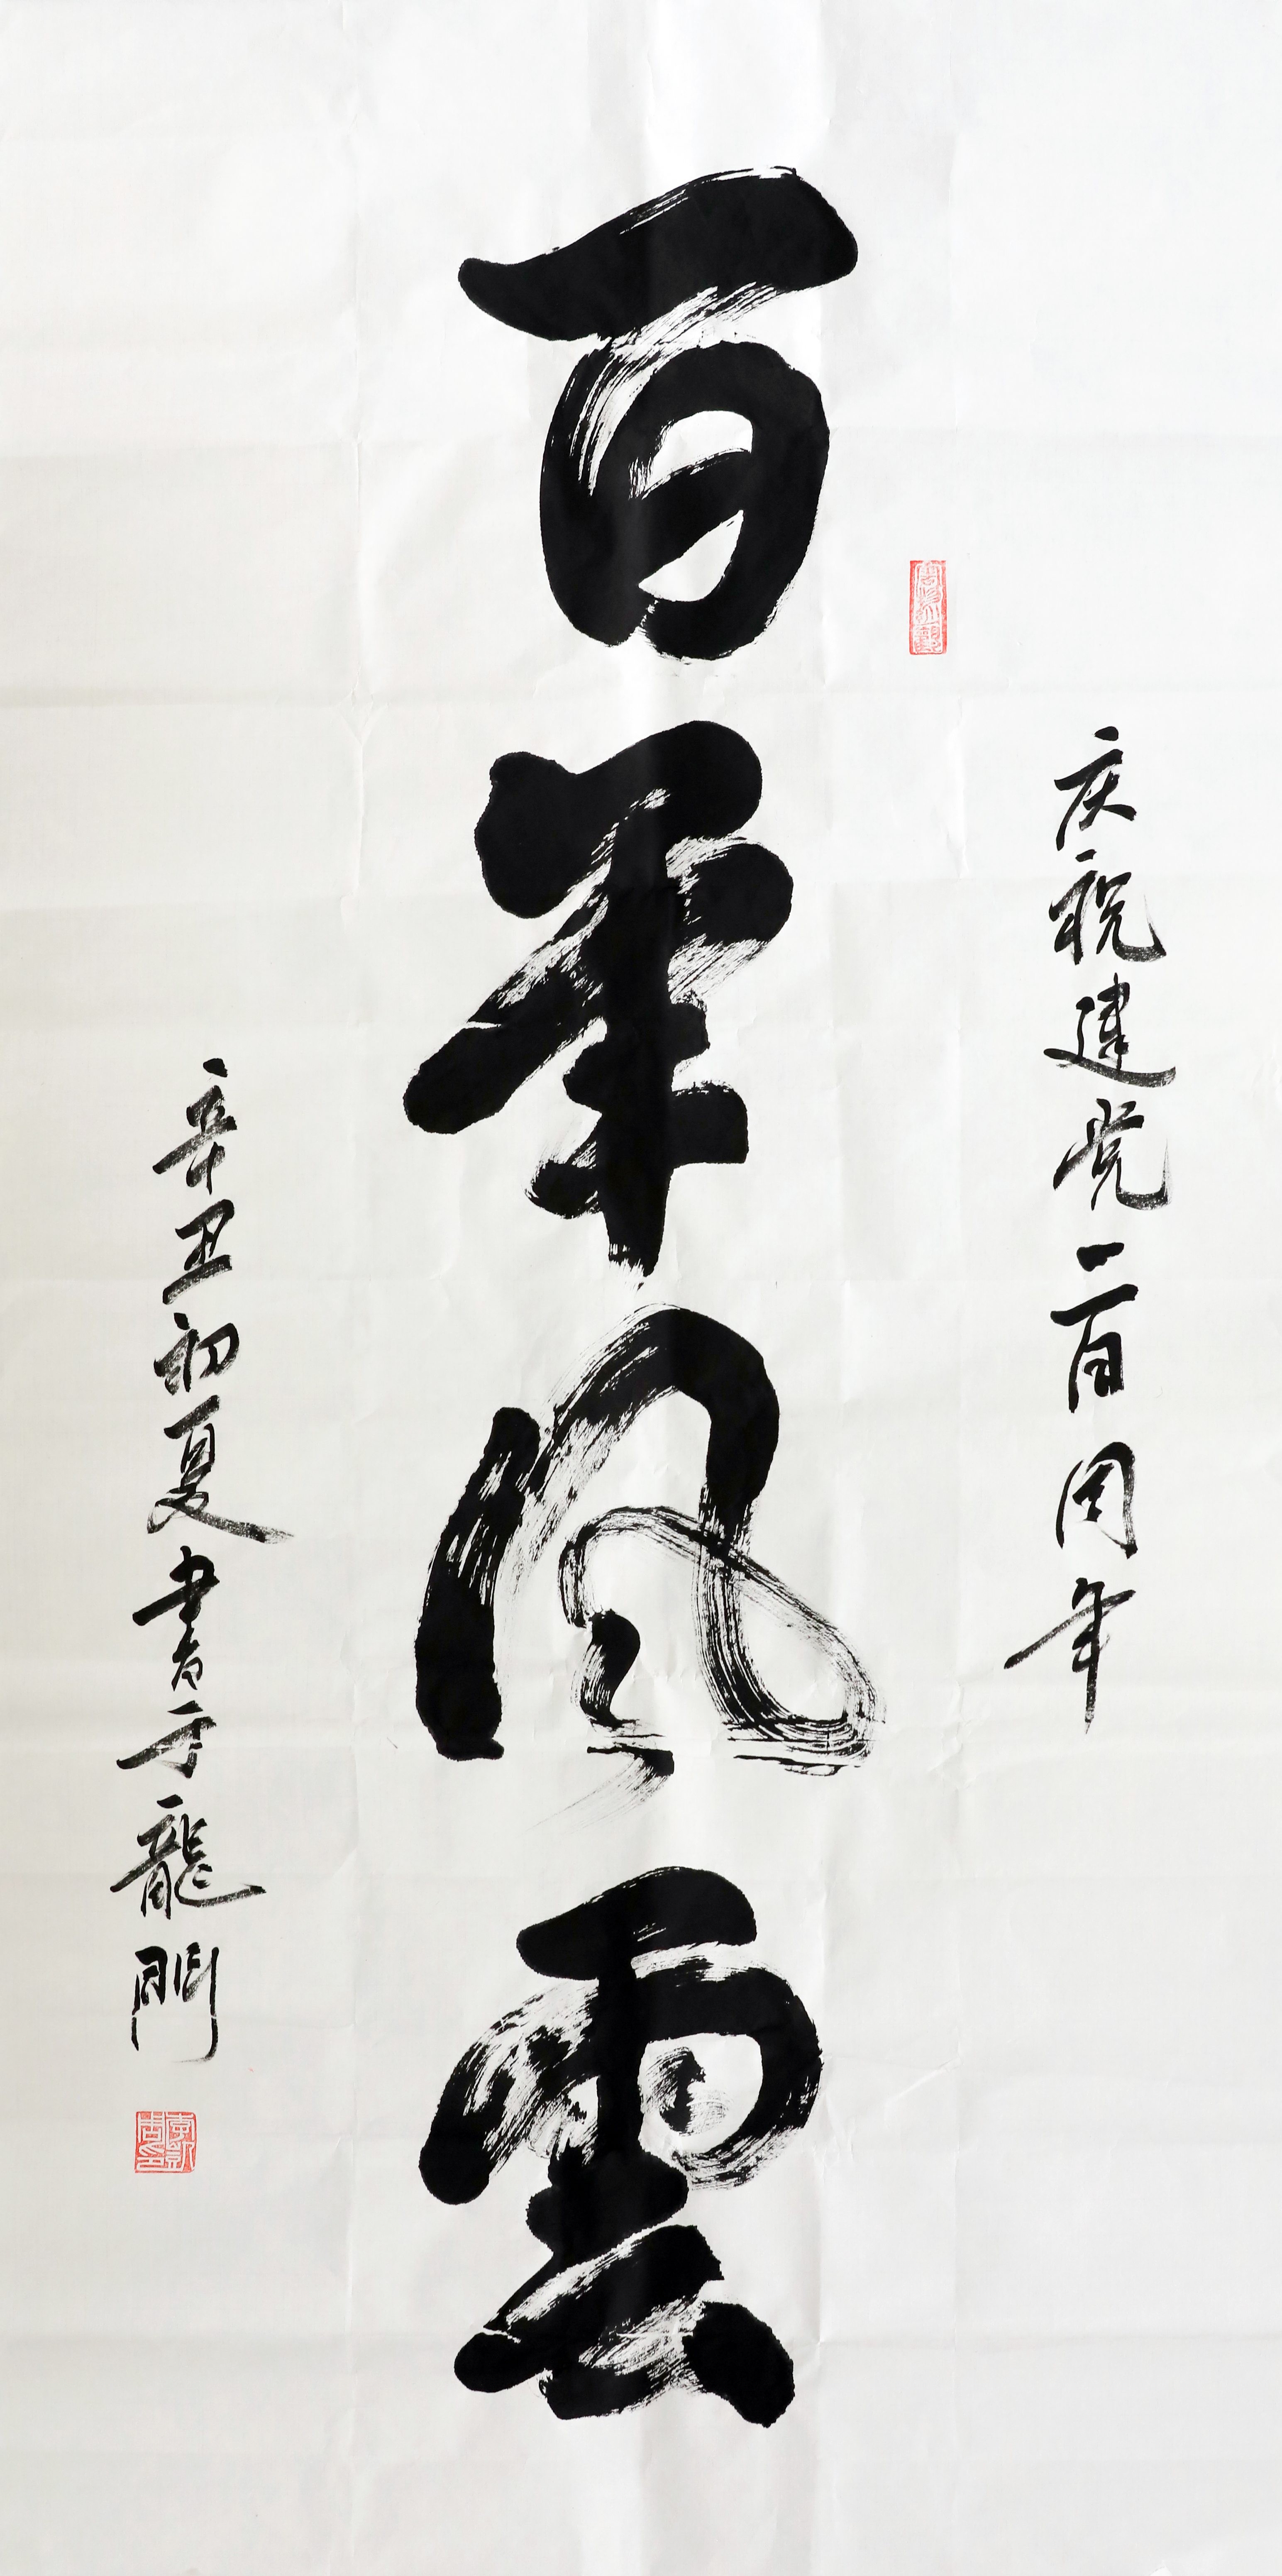 庆祝建党一百周年
百年风雲
辛丑初夏书于龍門